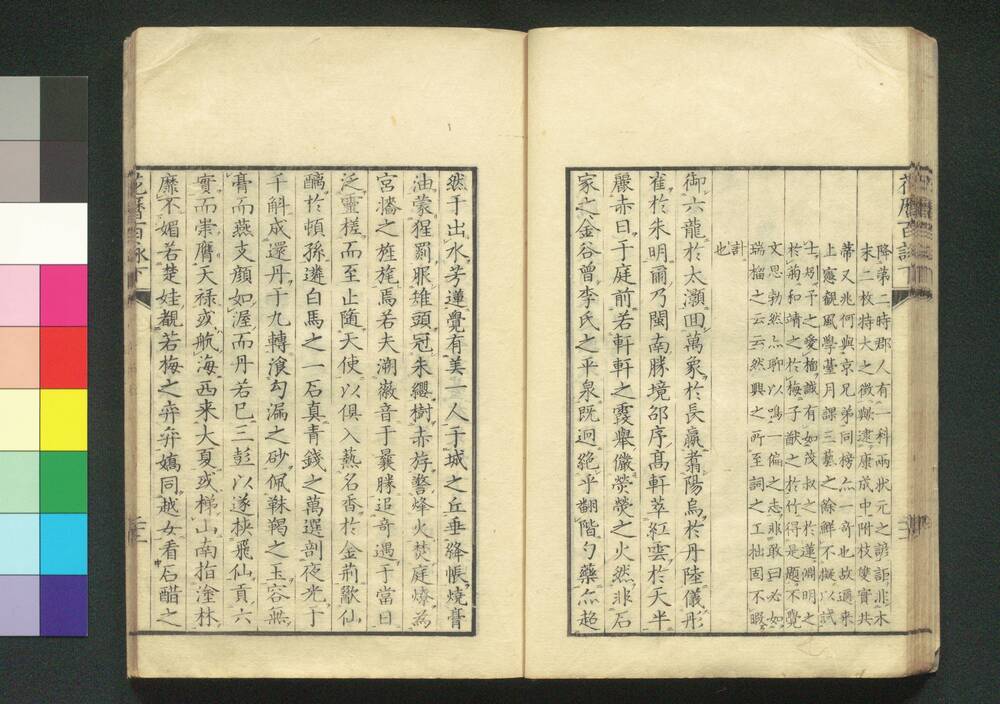 花曆百詠下
降第二時郡人有一科兩狀元之諺詎非木
末二枚特大之徵歟逮康成中附枝雙實共
蒂又兆何與京兄弟同榜亦一奇也故邇來
上憲觀風學臺月課三藝之餘鮮不擬以試
士夫予之愛榴誠有如茂叔之於蓮淵明之
於菊和靖之於梅子猷之於竹得是題不覺
文思勃然亦聊以鳴一偏之志非敢曰必如
瑞榴之云云然興之所至詞之工拙固不暇
計也
御六龍於太灝囬萬象於長嬴翥陽烏於丹陸儀彤
雀於朱明爾乃閩南勝境邵序髙軒萃紅雲於天半
麗赤日于庭前若軒軒之霞舉儼熒熒之火然非石
家之金谷曾李氏之平泉既迥絶乎翻階勺藥亦超
然于出水芳蓮覺有美一人于城之丘垂絳帳燒膏
油蒙猩罽服雄頭冠朱纓樹赤斿警烽火焚庭燎爲
宮墻之旌旄焉若夫溯徽音于曩牒追奇遇于當日
泛靈槎而至止隨天使以俱入爇名香於金荆歡仙
醑於頓孫遴白馬之一石真青錢之萬選剖夜光于
千斛成還丹于九轉飡勾漏之砂佩靺鞨之玉容無
膏而燕支顔如渥而丹若巳三彭以遂挾飛仙貢六
實而崇膺天禄或航海西来大夏或梯山南指塗林
靡不媚若楚娃覩若梅之弁弁嫣同越女看石醋之
花曆百詠下